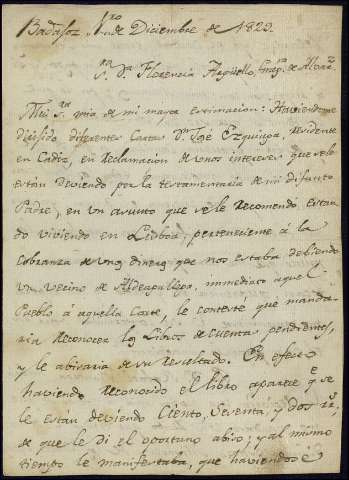 Badajoz 1ro de Diciembre de 1829.
Sra Da Florencia Argüello, de Alcanz
Mui Sra mia de mi mayor estimacion: Haviendome
dirijido diferentes Cartas Dn José Ezquiaga, residente
en Cadiz, en reclamacion de unos intereses que se le
estan deviendo por la testamentaria de mi difunto
Padre, en un asunto que se le recomendó estan
do viviendo en Lisboa, perteneciente á la
Cobranza de unos dineros que nos estaba debiendo
un vecino de immediato aquel
Pueblo á aquella Corte, le contesté que manda
ria reconocer los Libros de cuentas pendientes,
y le abisaria de su resultado. En efecto
haviendo reconocido el libro aparece qe se
le estan deviendo Ciento, Setenta, y dos rs,
de que le di el oportuno abiso; y al mismo
tiempo le manifestaba, que haviendose